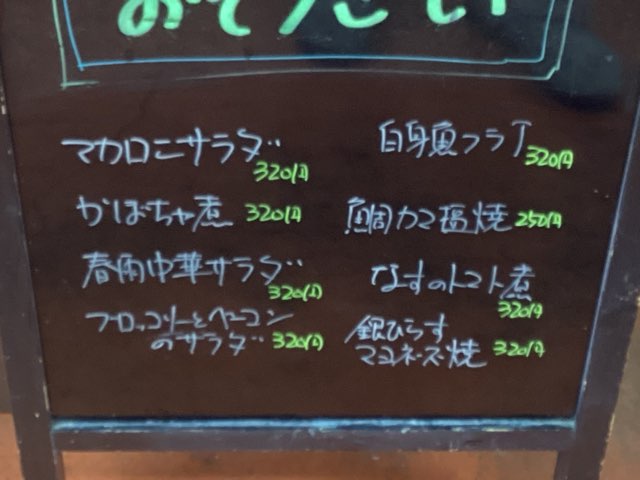 おそうざい
マカロニサラダ
320円
かぼちゃ煮 320円
春雨中華サラダ
320円
ブロッコリーとベーコン
のサラダ 320円
白身魚フライ
320円
鯛カマ塩焼 250円
なすのトマト煮
320円
銀ひらす
マヨネーズ焼 320円